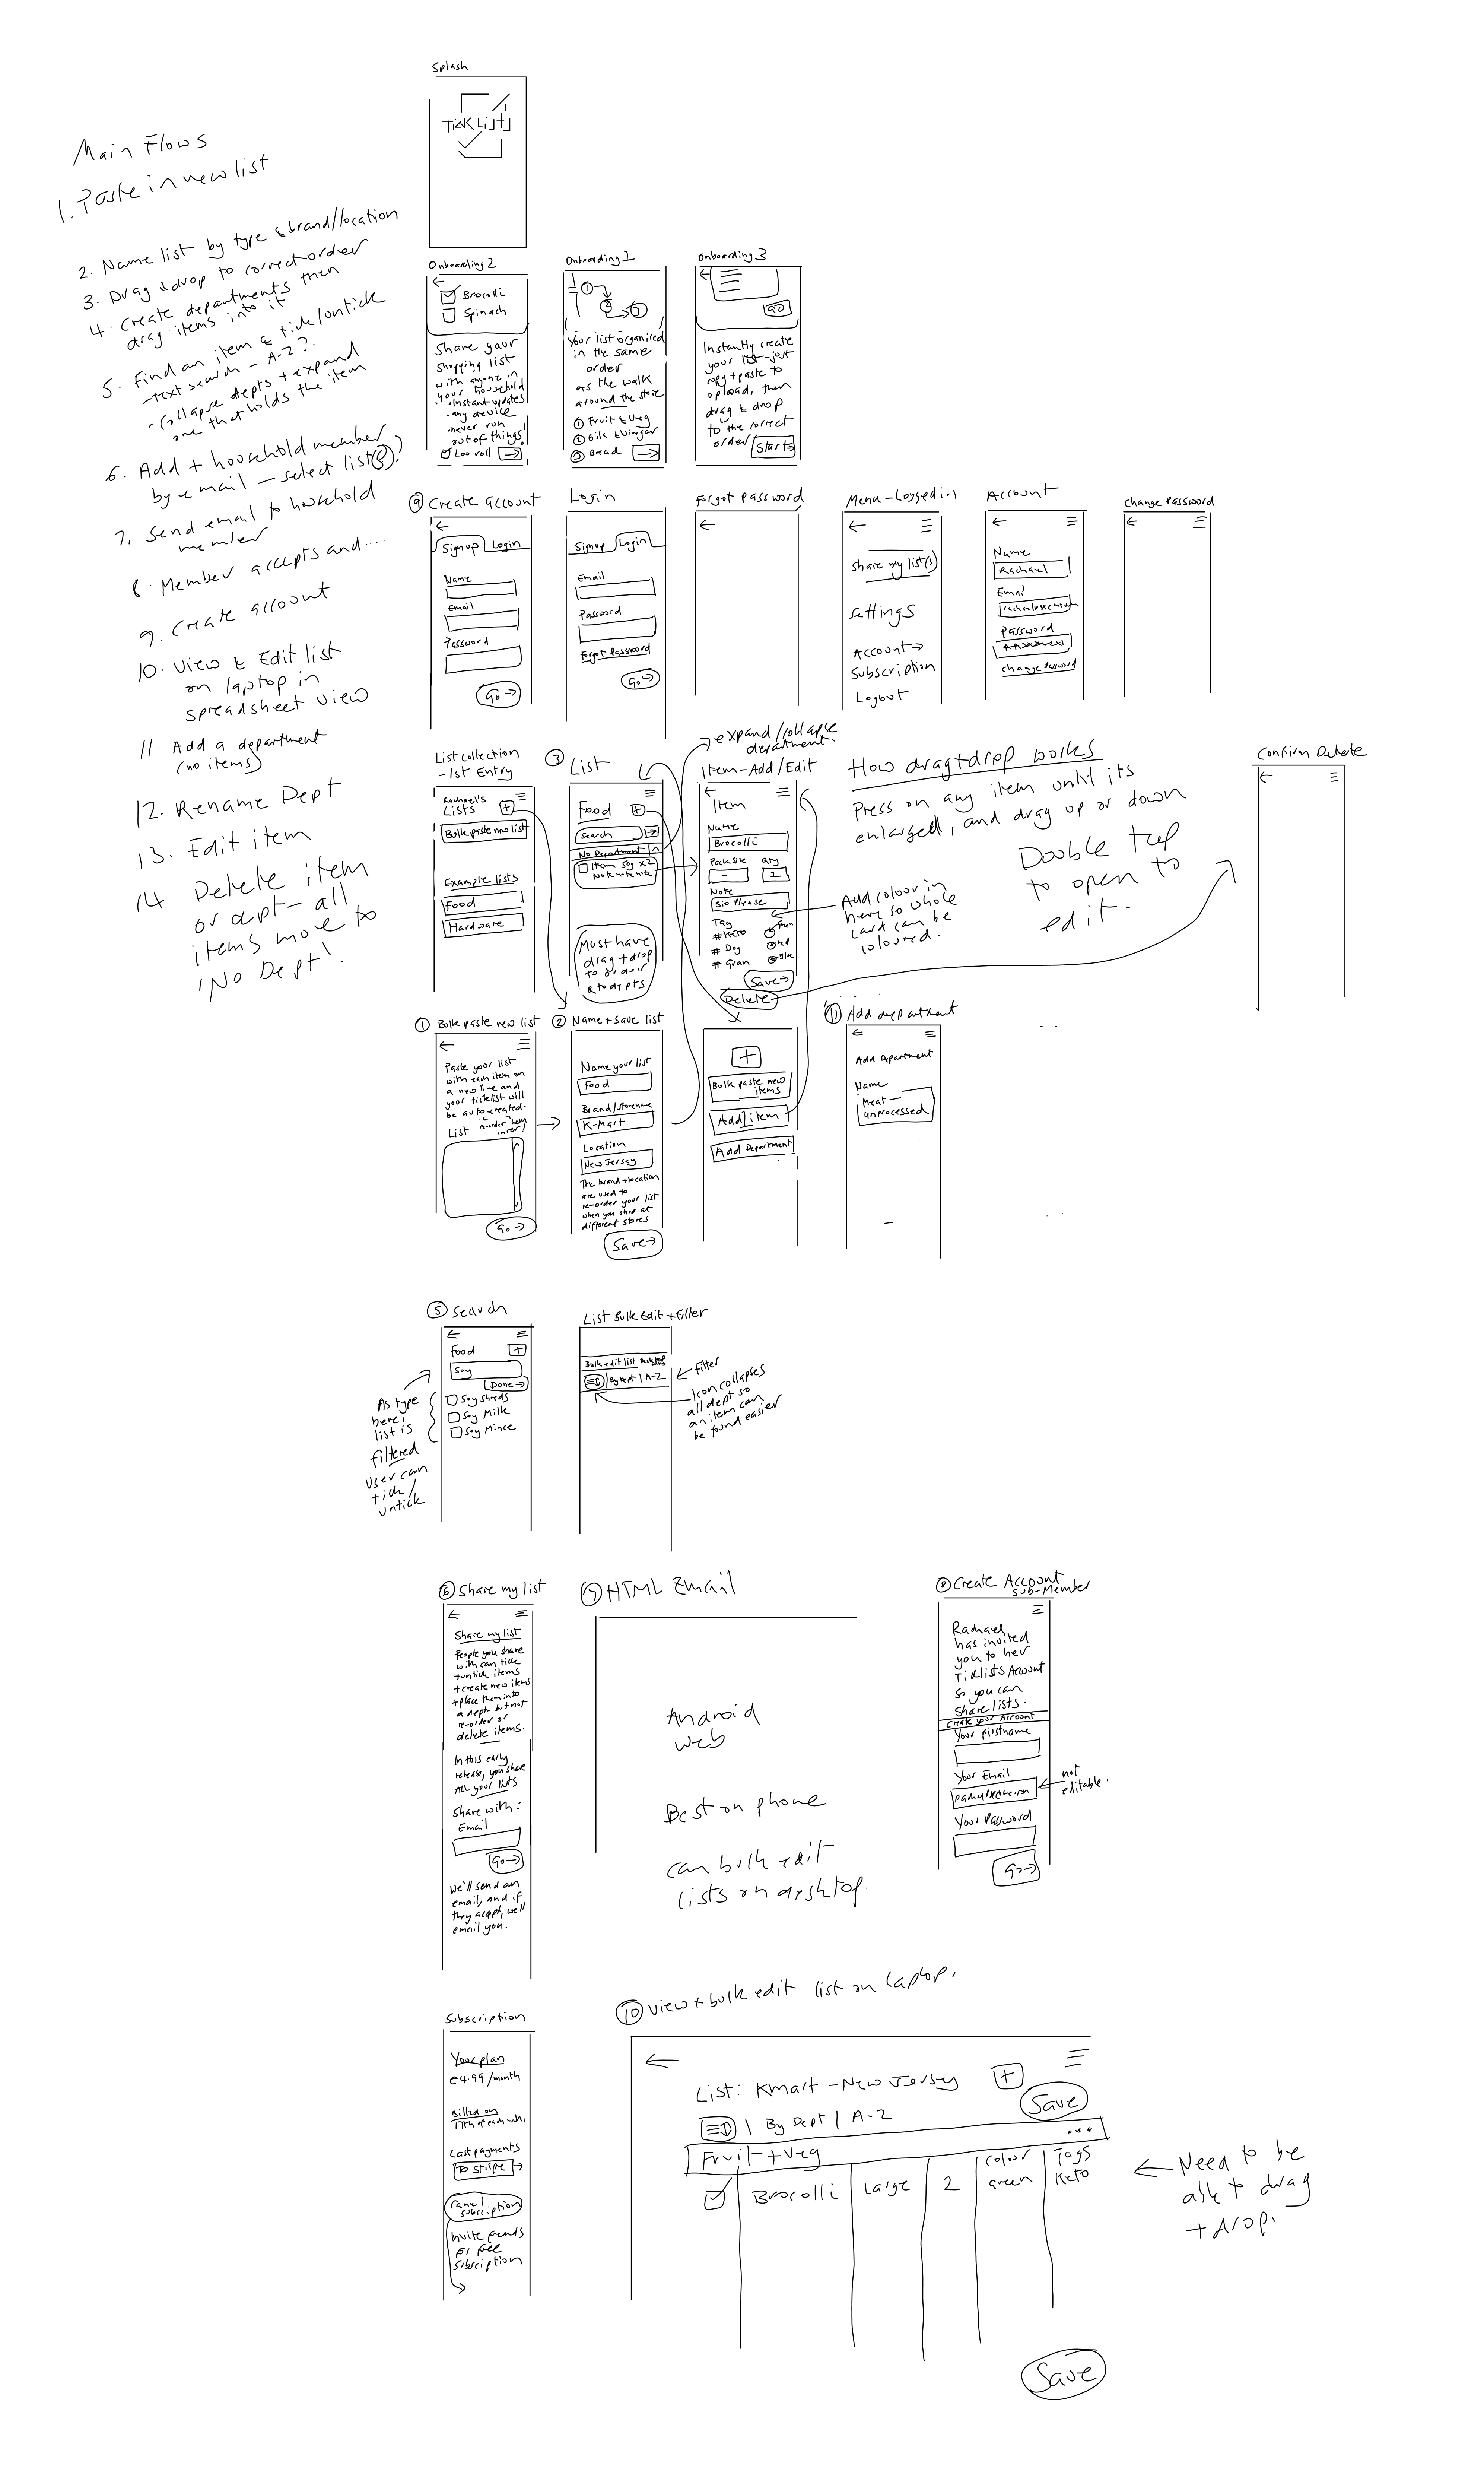 Splash
TickLists
Main Flows
1. Paste in new list
2. Name list by type & brand/location
3. Drag & drop to correct order
4. Create departments then
drag items into it
5. Find an item & tick/untick
- text search - A-Z?
- collapse depts + expand
one that holds the item
6. Add + household member
by email - select list(s)?
7. Send email to household
member
8. Member accepts and....
9. Create account
10. View & Edit list
on laptop in
spreadsheet view
11. Add a department
(no items)
12. Rename Dept
13. Edit item
14 Delete item
or dept - all
items move to
'No Dept'.
Onboarding 2
Brocolli
Spinach
Share your
shopping list
with anyone in
your household
• instant updates
• any device
• never run
out of things!
Loo roll
Onboarding 1
1
2
3
Your list organised
in the same
order
as the walk
around the store
1 Fruit & Veg
2 Oils & Vinegar
3 Bread
Onboarding 3
GO
Instantly create
your list - just
copy + paste to
upload, then
drag & drop
to the correct
order
Start
9 Create account
Signup Login
Name
Email
Password
Go
Login
Signup Login
Email
Password
Forgot Password
Go
Forgot Password
Menu - Logged in
Share my list(s)
Settings
Account
Subscription
Logout
Account
Name
Rachael
Email
Password
Change Password
Change Password
List collection
- 1st Entry
Rachael's
Lists +
Bulk paste new list
Example lists
Food
Hardware
3 List
Food +
Search
No Department
Item Soy x2
Note note note
Must have
drag + drop
to order
& to depts
expand/collapse
department.
Item - Add/Edit
Item
Name
Brocolli
Pack size Qty
- 2
Note
Bio Please
Tag
# Keto
# Dog
# Gran
Save
Delete
Add colour in
here so whole
card can be
coloured.
How drag + drop works
Press on any item until its
enlarged, and drag up or down
Double tap
to open to
edit.
Confirm Delete
1 Bulk paste new list
Paste your list
with each item on
a new line and
your ticklist will
be auto-created.
List
Go
2 Name + save list
Name your list
Food
Brand/storename
K-Mart
Location
New Jersey
The brand + location
are used to
re-order your list
when you shop at
different stores
Save
+
Bulk paste new
items
Add item
Add Department
11 Add department
Add Department
Name
Meat -
unprocessed
5 Search
Food +
Soy
Done
Soy Shreds
Soy Milk
Soy Mince
As type
here,
list is
filtered
User can
tick/
untick
List Bulk Edit + Filter
Bulk edit list Desktop
By Dept | A-Z
Filter
Icon collapses
all dept so
an item can
be found easier
6 Share my list
Share my list
People you share
with can tick
+ untick items
+ create new items
+ place them into
a dept - but not
re-order or
delete items.
In this early
release, you share
ALL your lists
Share with:
Email
Go
We'll send an
email, and if
they accept, we'll
email you.
7 HTML Email
Android
web
Best on phone
can bulk edit
lists on desktop.
8 Create Account
Sub-Member
Rachael
has invited
you to her
Ticklists Account
so you can
share lists.
Create your Account
Your firstname
Your Email
not
editable.
Your Password
Go
Subscription
Your plan
€4.99/month
Billed on
17th of each mth.
Last payments
To Stripe
Cancel
subscription
Invite friends
for free
subscription
10 View + bulk edit list on laptop.
List: Kmart - New Jersey +
Save
| By Dept | A-Z
Fruit + Veg ...
colour Tags
Brocolli Large 2 green Keto
Need to be
able to drag
+ drop.
Save